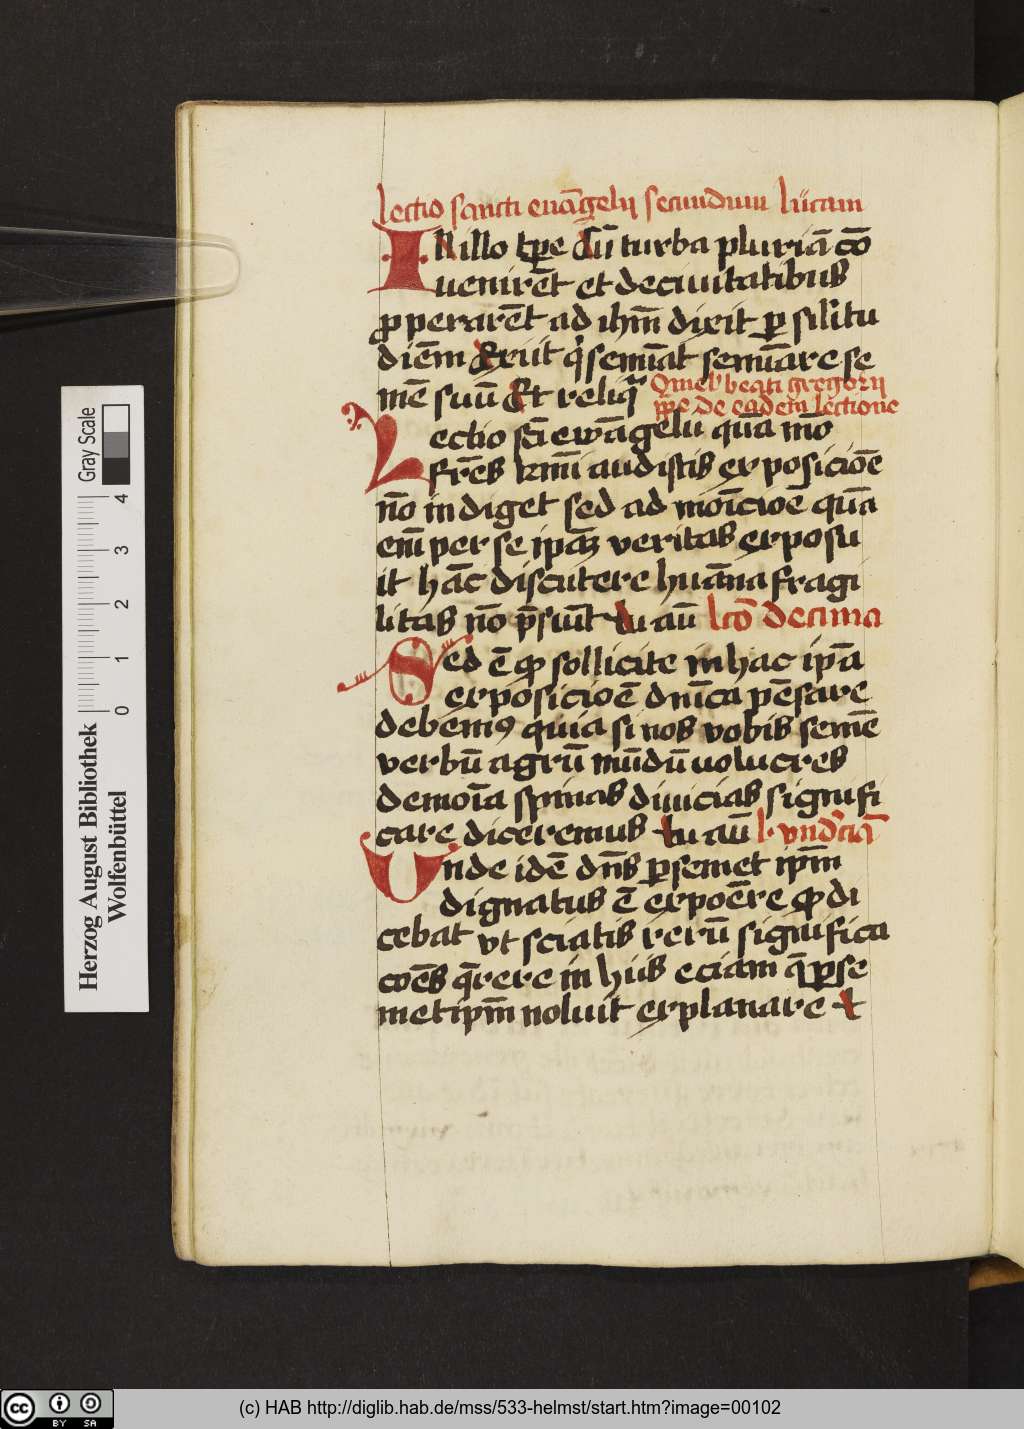 Lectio sancti euāgelij secundum lucam
IN illo tp̄e cū turba pluriā cō
uenirēt et de ciuitatibus
ꝓperarēt ad ihm̄ dixit ꝑ silitu
diēm Exiit q' semīat semīare se
mē suū Et reliq Omel' beati gregorij
pp̄e de eadem lectione
Lectio scī ewāgelii quā mō
fr̄es k̄mi audistis exposiciōe
nō indiget sed ad moīcioe quā
em̄ per se ipāz veritas exposu
it hāc discutere huāna fragi
litas nō p̄siūt tu aū lcō decima
Sed ē ꝙ sollicite in hac ip̄a
exposicioē dnīca pēsare
debemꝰ quia si nos vobis semē
verbū agrū mūdū uolucres
demoīa spinas diuicias signifi
care diceremus tu aū l. vndēciā
Unde idē dn̄s ꝑ semet ipm̄
dignatus ē expoēre ꝙ di
cebat vt sciatis rerū significa
coēs q̄rere in hiis eciam q̄ ꝑ se
met ipm̄ noluit explanare &
Herzog August Bibliothek
Wolfenbüttel
Gray Scale
0 1 2 3 4
cc BY SA
(c) HAB http://diglib.hab.de/mss/533-helmst/start.htm?image=00102